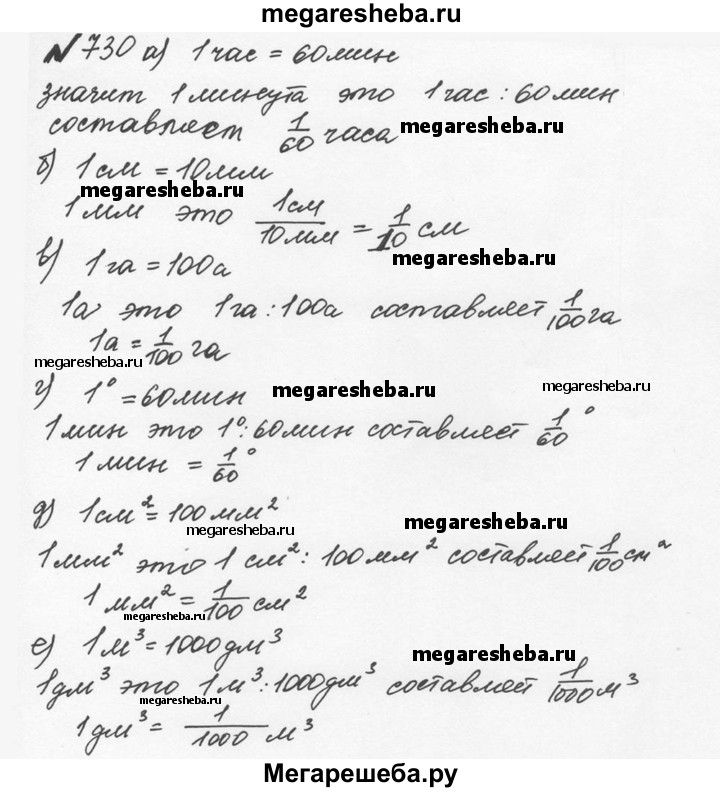 megaresheba.ru
№730 а) 1 час = 60 мин
значит 1 минута это 1 час : 60 мин
составляет 1/60 часа megaresheba.ru
б) 1 см = 10 мм
megaresheba.ru
1 мм это 1 см/10 мм = 1/10 см
megaresheba.ru
в) 1 га = 100 а
1а это 1 га : 100а составляет 1/100 га
1а = 1/100 га
megaresheba.ru
г) 1° = 60 мин megaresheba.ru megaresheba.ru
1 мин это 1° : 60 мин составляет 1/60°
1 мин = 1/60°
д) 1 см² = 100 мм²
megaresheba.ru megaresheba.ru
1 мм² это 1 см² : 100 мм² составляет 1/100 см²
1 мм² = 1/100 см²
megaresheba.ru
е) 1 м³ = 1000 дм³
megaresheba.ru
1 дм³ это 1 м³ : 1000 дм³ составляет 1/1000 м³
megaresheba.ru
1 дм³ = 1/1000 м³
Мегарешеба.ру